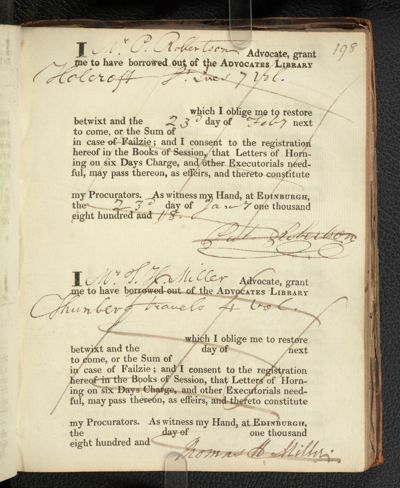 198
I Mr P. Robertson Advocate, grant
me to have borrowed out of the ADVOCATES LIBRARY
Holcroft St Ives 7 Vol.
which I oblige me to restore
betwixt and the 23d day of Feby next
to come, or the Sum of
in case of Failzie; and I consent to the registration
hereof in the Books of Session, that Letters of Horn-
ing on six Days Charge, and other Executorials need-
ful, may pass thereon, as effeirs, and thereto constitute
my Procurators. As witness my Hand, at EDINBURGH,
the 23d day of Jany one thousand
eight hundred and 18.
Patk Robertson
I Mr T. H. Miller Advocate, grant
me to have borrowed out of the ADVOCATES LIBRARY
Thunberg travels 4 Vol.
which I oblige me to restore
betwixt and the day of next
to come, or the Sum of
in case of Failzie; and I consent to the registration
hereof in the Books of Session, that Letters of Horn-
ing on six Days Charge, and other Executorials need-
ful, may pass thereon, as effeirs, and thereto constitute
my Procurators. As witness my Hand, at EDINBURGH,
the day of one thousand
eight hundred and
Thomas H Miller